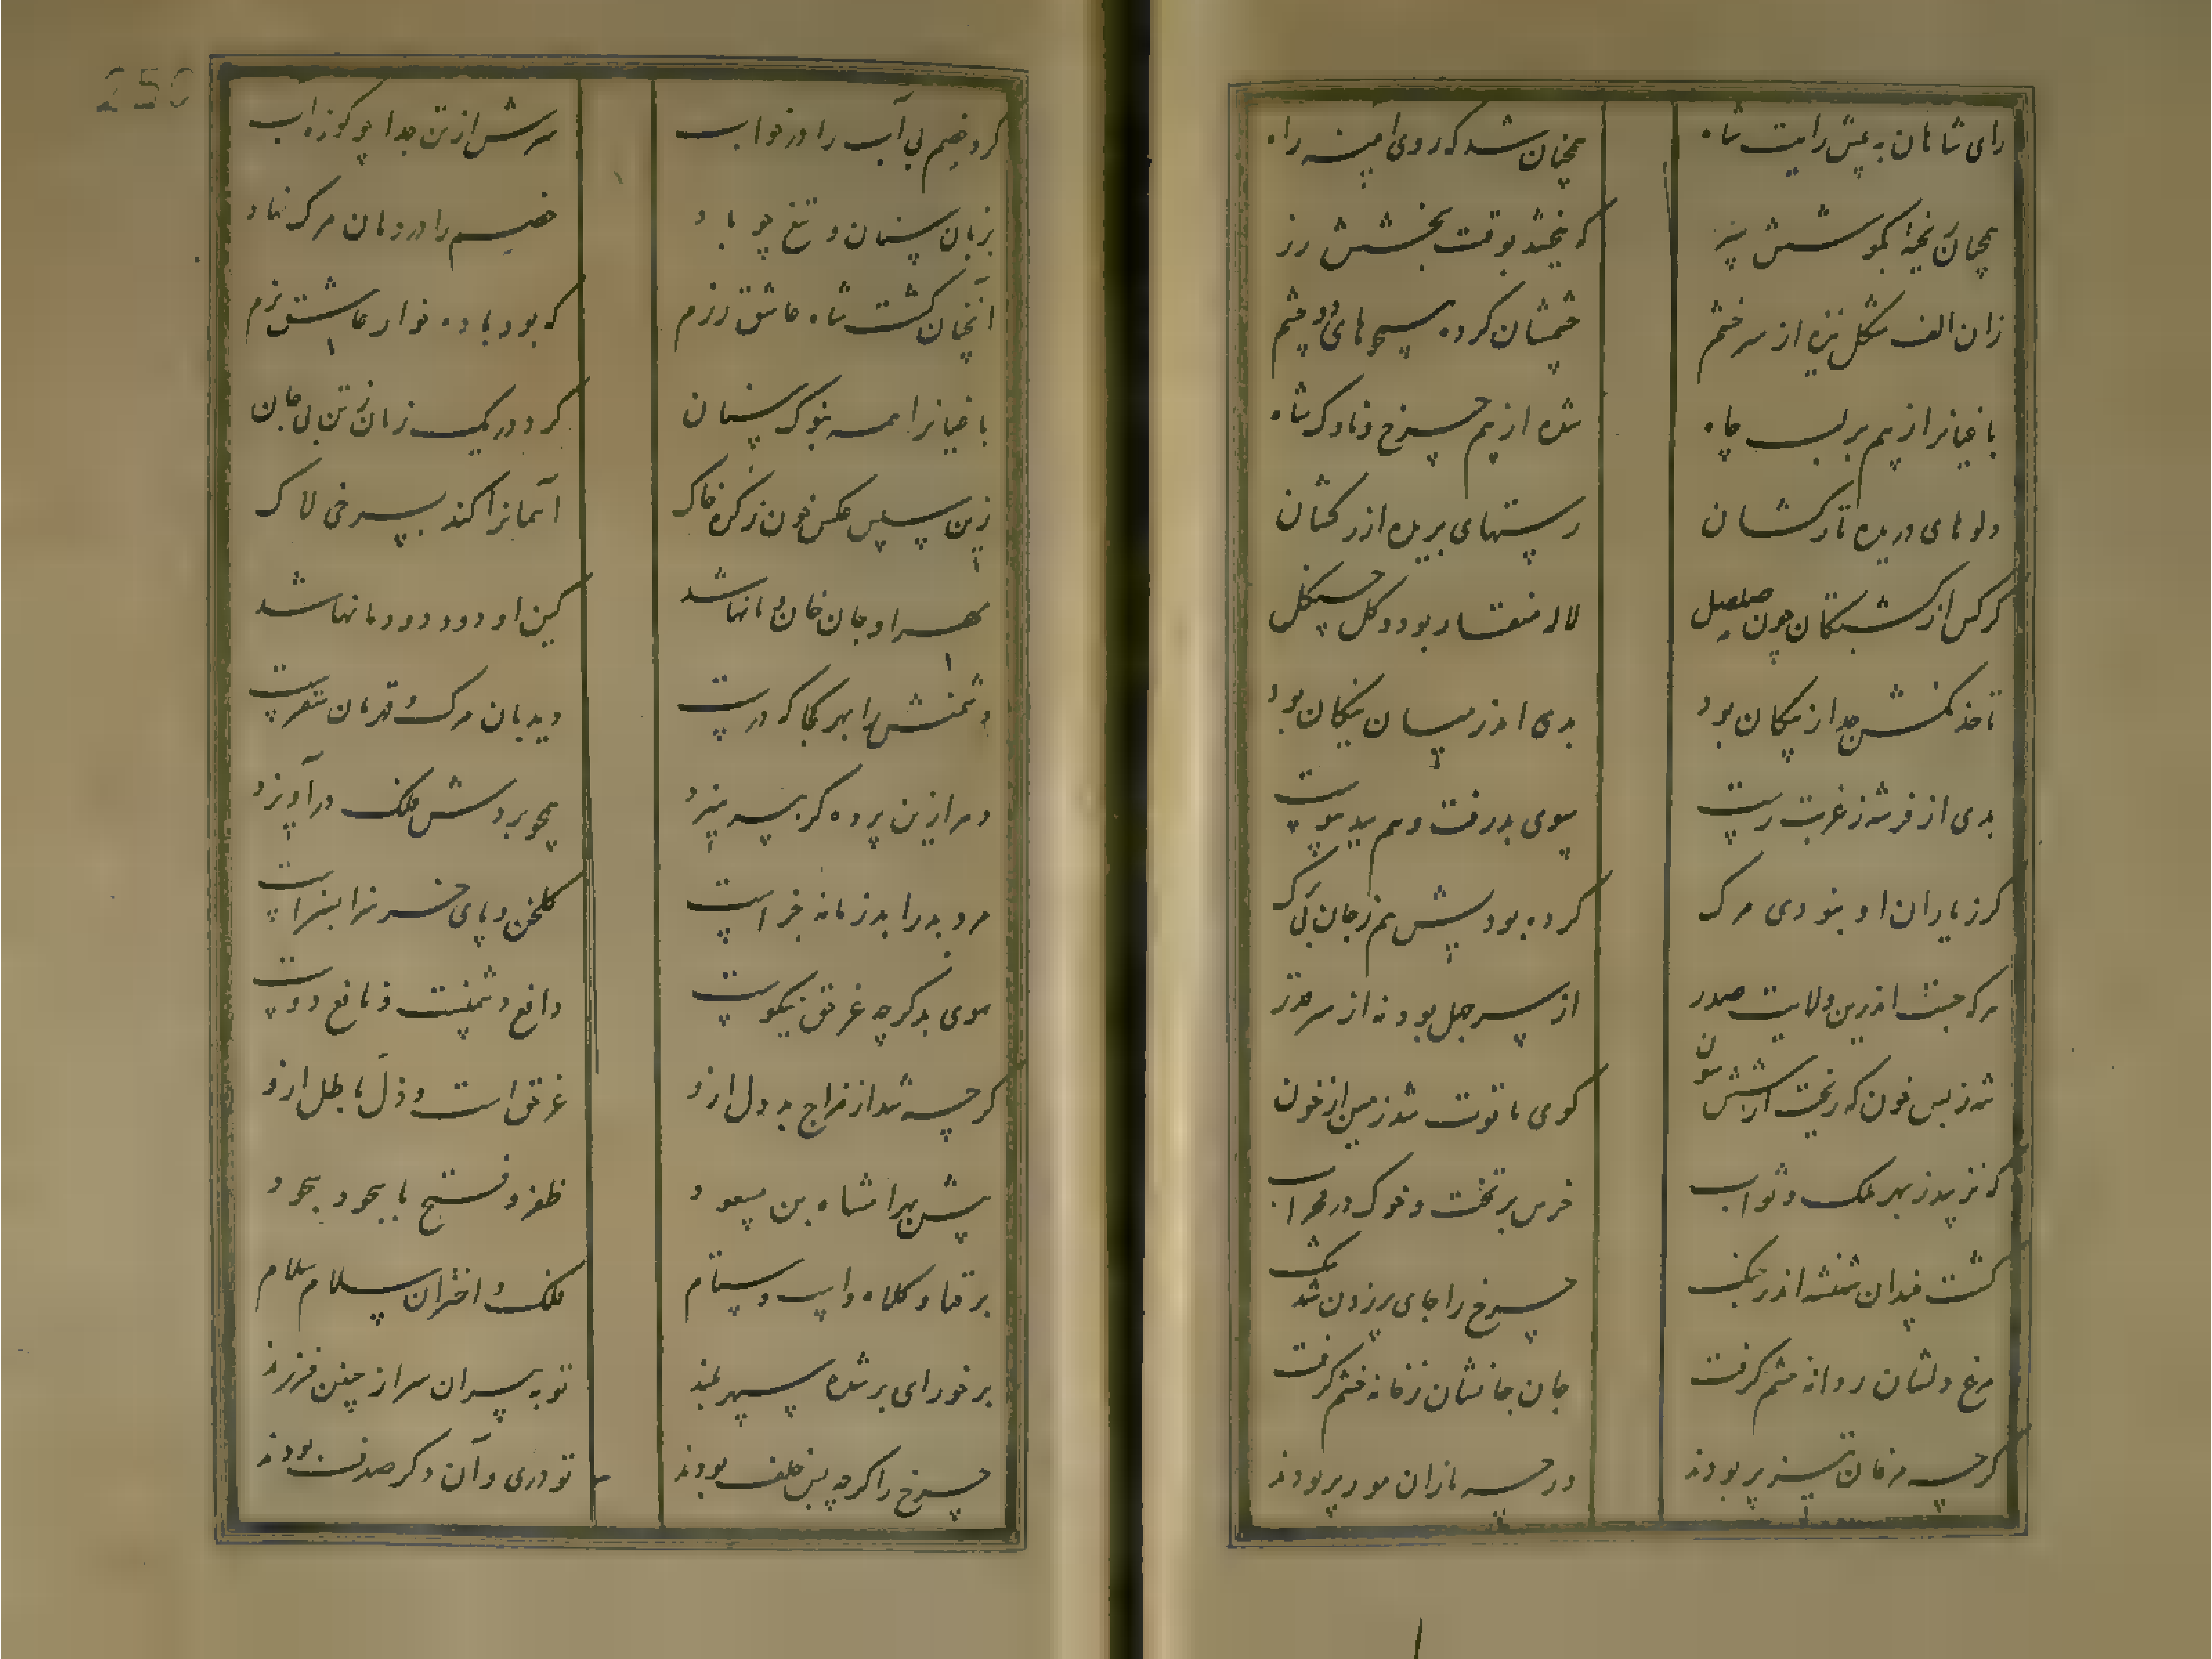 رای شاهان به پیش رایت شاه
همچنان شد که روی اینه راه
همچنان بکوشش
که نبخشد بوقت بخشش رز
زان الف شکل نیزه از سر خشم
چشمشان کرده های دو چشم
باغیانرا از بیم بر لب چاه
شده از بیم چرخ و ناوک شاه
دلوهای دریده تارکشان
رستهای بریده از رکشان
کرکس از کشتکان چون صلصل
لاله منقار بود و کل چنکل
تاختنکش جدا ز نیکان بود
بدی اندر میان نیکان بود
بدی از فر شه ز غربت رست
سوی بد رفت و هم ببد پیوست
کر ز یاران او نبودی مرک
کرده بود پیش هم ز جان برک
هر که جست اندرین ولایت صدر
از سر جهل بود نه از سر قدر
شد ز بس خون که ریخت ارتشش سون
کوی یاقوت شد زمین از خون
که نزیبد ز بهر ملک و ثواب
خرس بر تخت و خوک در محراب
کشت چندان شهنشه اندر جنک
چرخ را جای پر زدن شد تنک
مرغ دلشان ز دانه خشم کرفت
جان جانشان ز خانه خشم کرفت
کرچه مرغان تیز پر بودند
در چه ماران مور پر بودند
کرد خصم بی آب را در خواب
سرش از تن جدا چو کوزه اب
بزبان سنان و تیغ چو باد
خصم را در دهان مرک نهاد
آنچنان کشت شاه عاشق رزم
که بود باده خوار عاشق بزم
باغیانرا همه بنوک سنان
کرد در یک زمان ز تن بی جان
زین سپس عکس خون ز کره خاک
آسمانرا کند بسرخی لاک
مهر او جان خان و مانها شد
کین او دود دودمانها شد
دشمنش را بهر کجا که درست
دیدبان مرک و قهرمان سقرست
در ازین پرده کر بپرهیزد
همچو بردش فلک درآویزد
مرد بد را بد زمانه جزاست
کلخن و پای خر سزا بسزاست
سوی بد کرچه غرق نیکوست
دافع دشمنست و نافع دوست
کرچه شد از مزاج بد دل ازو
غرق است و ذل باطل ازو
پیش بهرامشاه بن مسعود
ظفر و فتح با سجود سجود
بر قبا و کلاه و اسب و ستام
فلک و اختران سلام سلام
برخور ای بر شده سپهر بلند
تو به پیران سر از چنین فرزند
چرخ را کرچه بس خلف بودند
تو دری و آن دکر صدف بودند